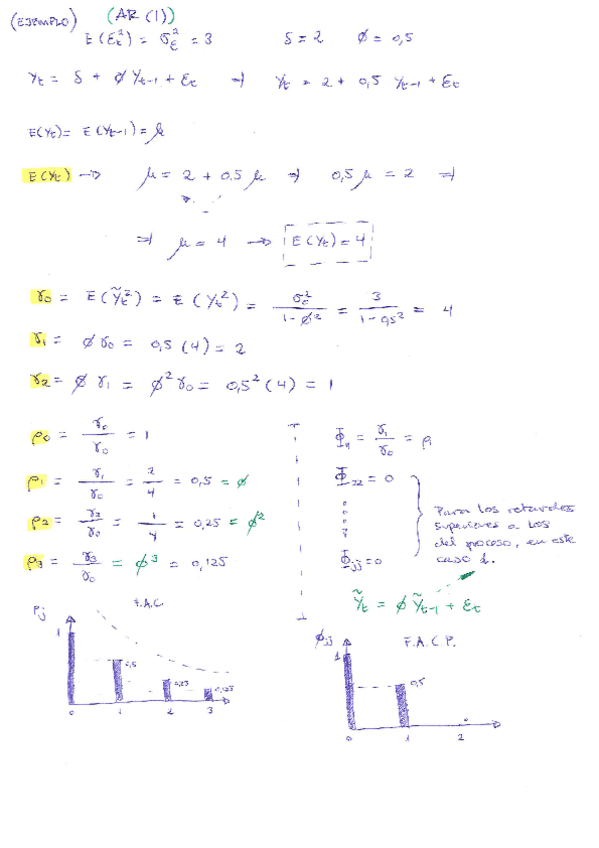 (EJEMPLO) (AR(1))
E(Ɛt²) = σƐ² = 3 δ = 2 ϕ = 0,5
Yt = δ + ϕ Yt-1 + Ɛt ⇒ Yt = 2 + 0,5 Yt-1 + Ɛt
E(Yt) = E(Yt-1) = μ
E(Yt) → μ = 2 + 0.5 μ ⇒ 0,5 μ = 2 ⇒
⇒ μ = 4 → E(Yt) = 4
γ0 = E(Ỹt²) = E(Yt²) = σƐ² / (1 - ϕ²) = 3 / (1 - 0,5²) = 4
γ1 = ϕ γ0 = 0,5 (4) = 2
γ2 = ϕ γ1 = ϕ² γ0 = 0,5² (4) = 1
ρ0 = γ0 / γ0 = 1
ρ1 = γ1 / γ0 = 2 / 4 = 0,5 = ϕ
ρ2 = γ2 / γ0 = 1 / 4 = 0,25 = ϕ²
ρ3 = γ3 / γ0 = ϕ³ = 0,125
Φ11 = γ1 / γ0 = ρ1
Φ22 = 0
Φjj = 0
Para los retardos
superiores a los
del proceso, en este
caso 1.
Ỹt = ϕ Ỹt-1 + Ɛt
ρj F.A.C.
1
0,5
0,25
0,125
0 1 2 3
ϕjj F.A.C.P.
1
0,5
0 1 2